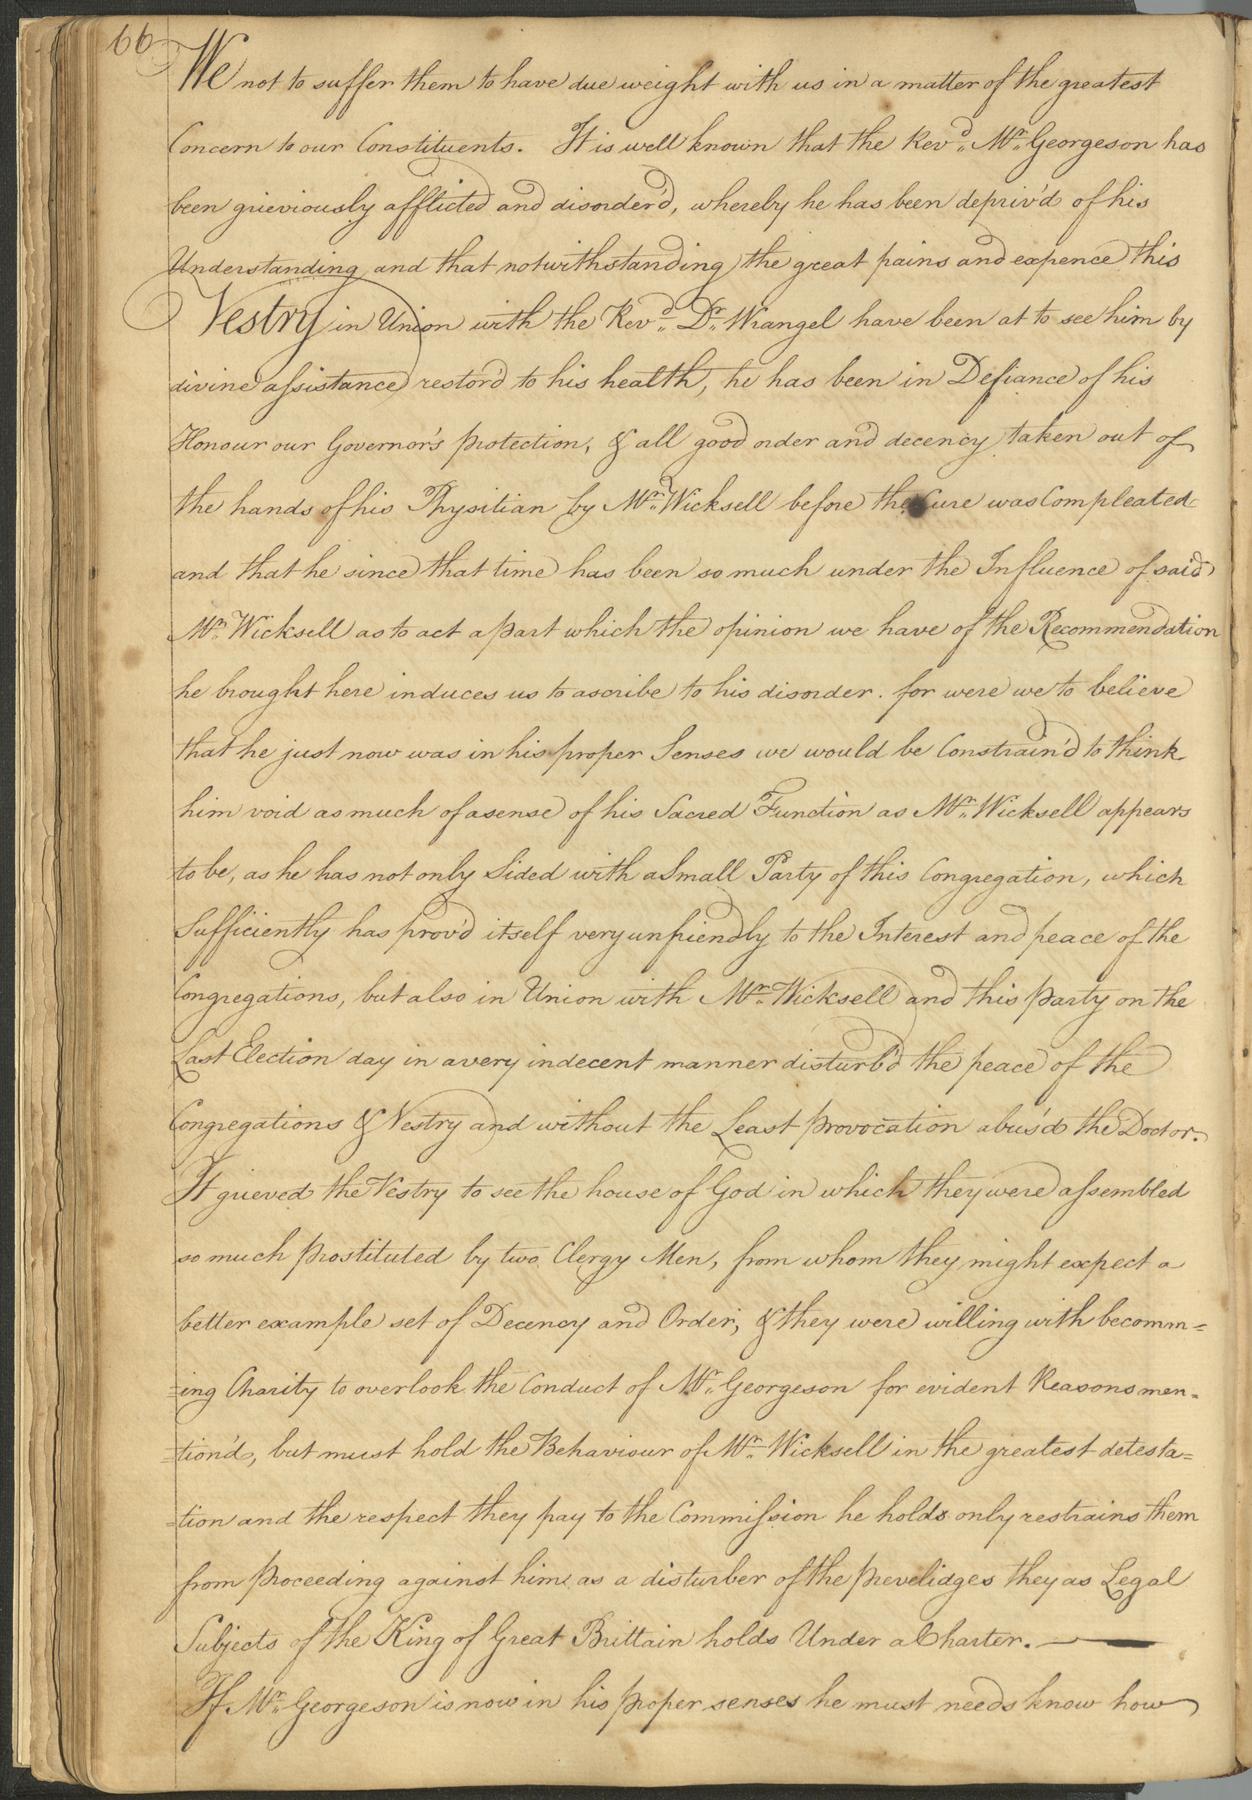 66
We not to suffer them to have due weight with us in a matter of the greatest
Concern to our Constituents. It is well known that the Revd. Mr. Georgeson has
been grieviously afflicted and disorder'd, whereby he has been depriv'd of his
Understanding and that notwithstanding the great pains and expence this
Vestry in Union with the Revd. Dr. Wrangel have been at to see him by
divine assistance restor'd to his health, he has been in Defiance of his
Honour our Governor's protection, & all good order and decency taken out of
the hands of his Physitian by Mr. Wicksell before the Cure was Compleated
and that he since that time has been so much under the Influence of said
Mr. Wicksell as to act a part which the opinion we have of the Recommendation
he brought here induces us to ascribe to his disorder. for were we to believe
that he just now was in his proper Senses we would be Constrain'd to think
him void as much of a sense of his Sacred Function as Mr. Wicksell appears
to be, as he has not only Sided with a Small Party of this Congregation, which
Sufficiently has prov'd itself very unfriendly to the Interest and peace of the
Congregations, but also in Union with Mr. Wicksell and this party on the
Last Election day in a very indecent manner disturb'd the peace of the
Congregations & Vestry and without the Least provocation abus'd the Doctor.
It grieved the Vestry to see the house of God in which they were assembled
so much prostituted by two Clergy Men, from whom they might expect a
better example set of Decency and Order, & they were willing with becomm=
=ing Charity to overlook the Conduct of Mr. Georgeson for evident Reasons men=
=tion'd, but must hold the Behaviour of Mr. Wicksell in the greatest detesta=
=tion and the respect they pay to the Commission he holds only restrains them
from proceeding against him as a disturber of the prevelidges they as Legal
Subjects of the King of Great Brittain holds Under a Charter. —
If Mr. Georgeson is now in his proper senses he must needs know how